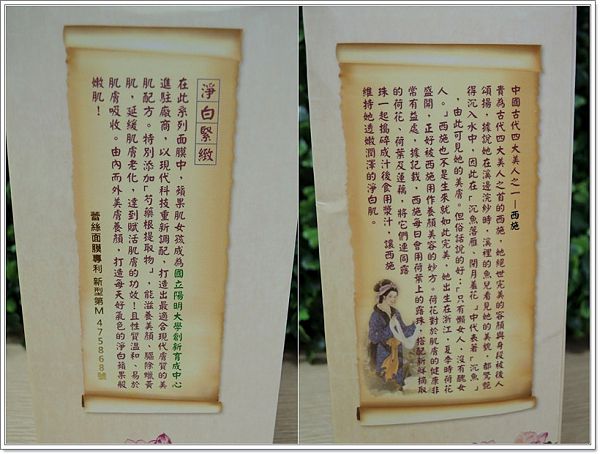 淨白緊緻
在此系列面膜中，蘋果肌女孩成為國立陽明大學創新育成中心
進駐廠商，以現代科技重新調配，打造出最適合現代膚質的美
肌配方。特別添加「芍藥根提取物」，能滋養美顏、驅除蠟黃
肌，延緩肌膚老化，達到賦活肌膚的功效！且性質溫和、易於
肌膚吸收。由內而外美膚養顏，打造每天好氣色的淨白蘋果般
嫩肌！
蕾絲面膜專利 新型第M 475868號
中國古代四大美人之一——西施
貴為古代四大美人之首的西施，她絕世完美的容顏與身段被後人
頌揚，據說她在溪邊浣紗時，溪裡的魚兒看見她的美貌，都驚艷
得沉入水中，因此在「沉魚落雁、閉月羞花」中代表著「沉魚」
，由此可見她的美膚。但俗話說的好：「只有懶女人，沒有醜女
人。」西施也不是生來就如此完美，她出生在浙江，夏季時荷花
盛開，正好被西施用作養顏美容的妙方。荷花對於肌膚的健康非
常有益處，據記載，西施每日會用荷葉上的露珠，搭配新鮮摘取
的荷花、荷葉及蓮藕，將它們連同露
珠一起搗碎成汁後食用漿汁，讓西施
維持她透嫩潤澤的淨白肌。